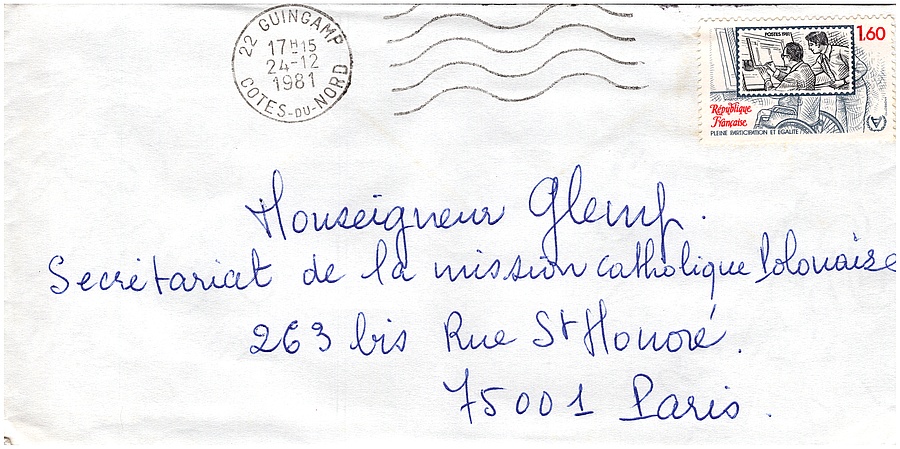 22 GUINGAMP
17H15
24-12
1981
COTES-DU-NORD
POSTES 1981
1,60
République
Française
PLEINE PARTICIPATION ET EGALITE
Monseigneur Glemp.
Secrétariat de la mission catholique Polonaise
263 bis Rue St Honoré.
75001 Paris.